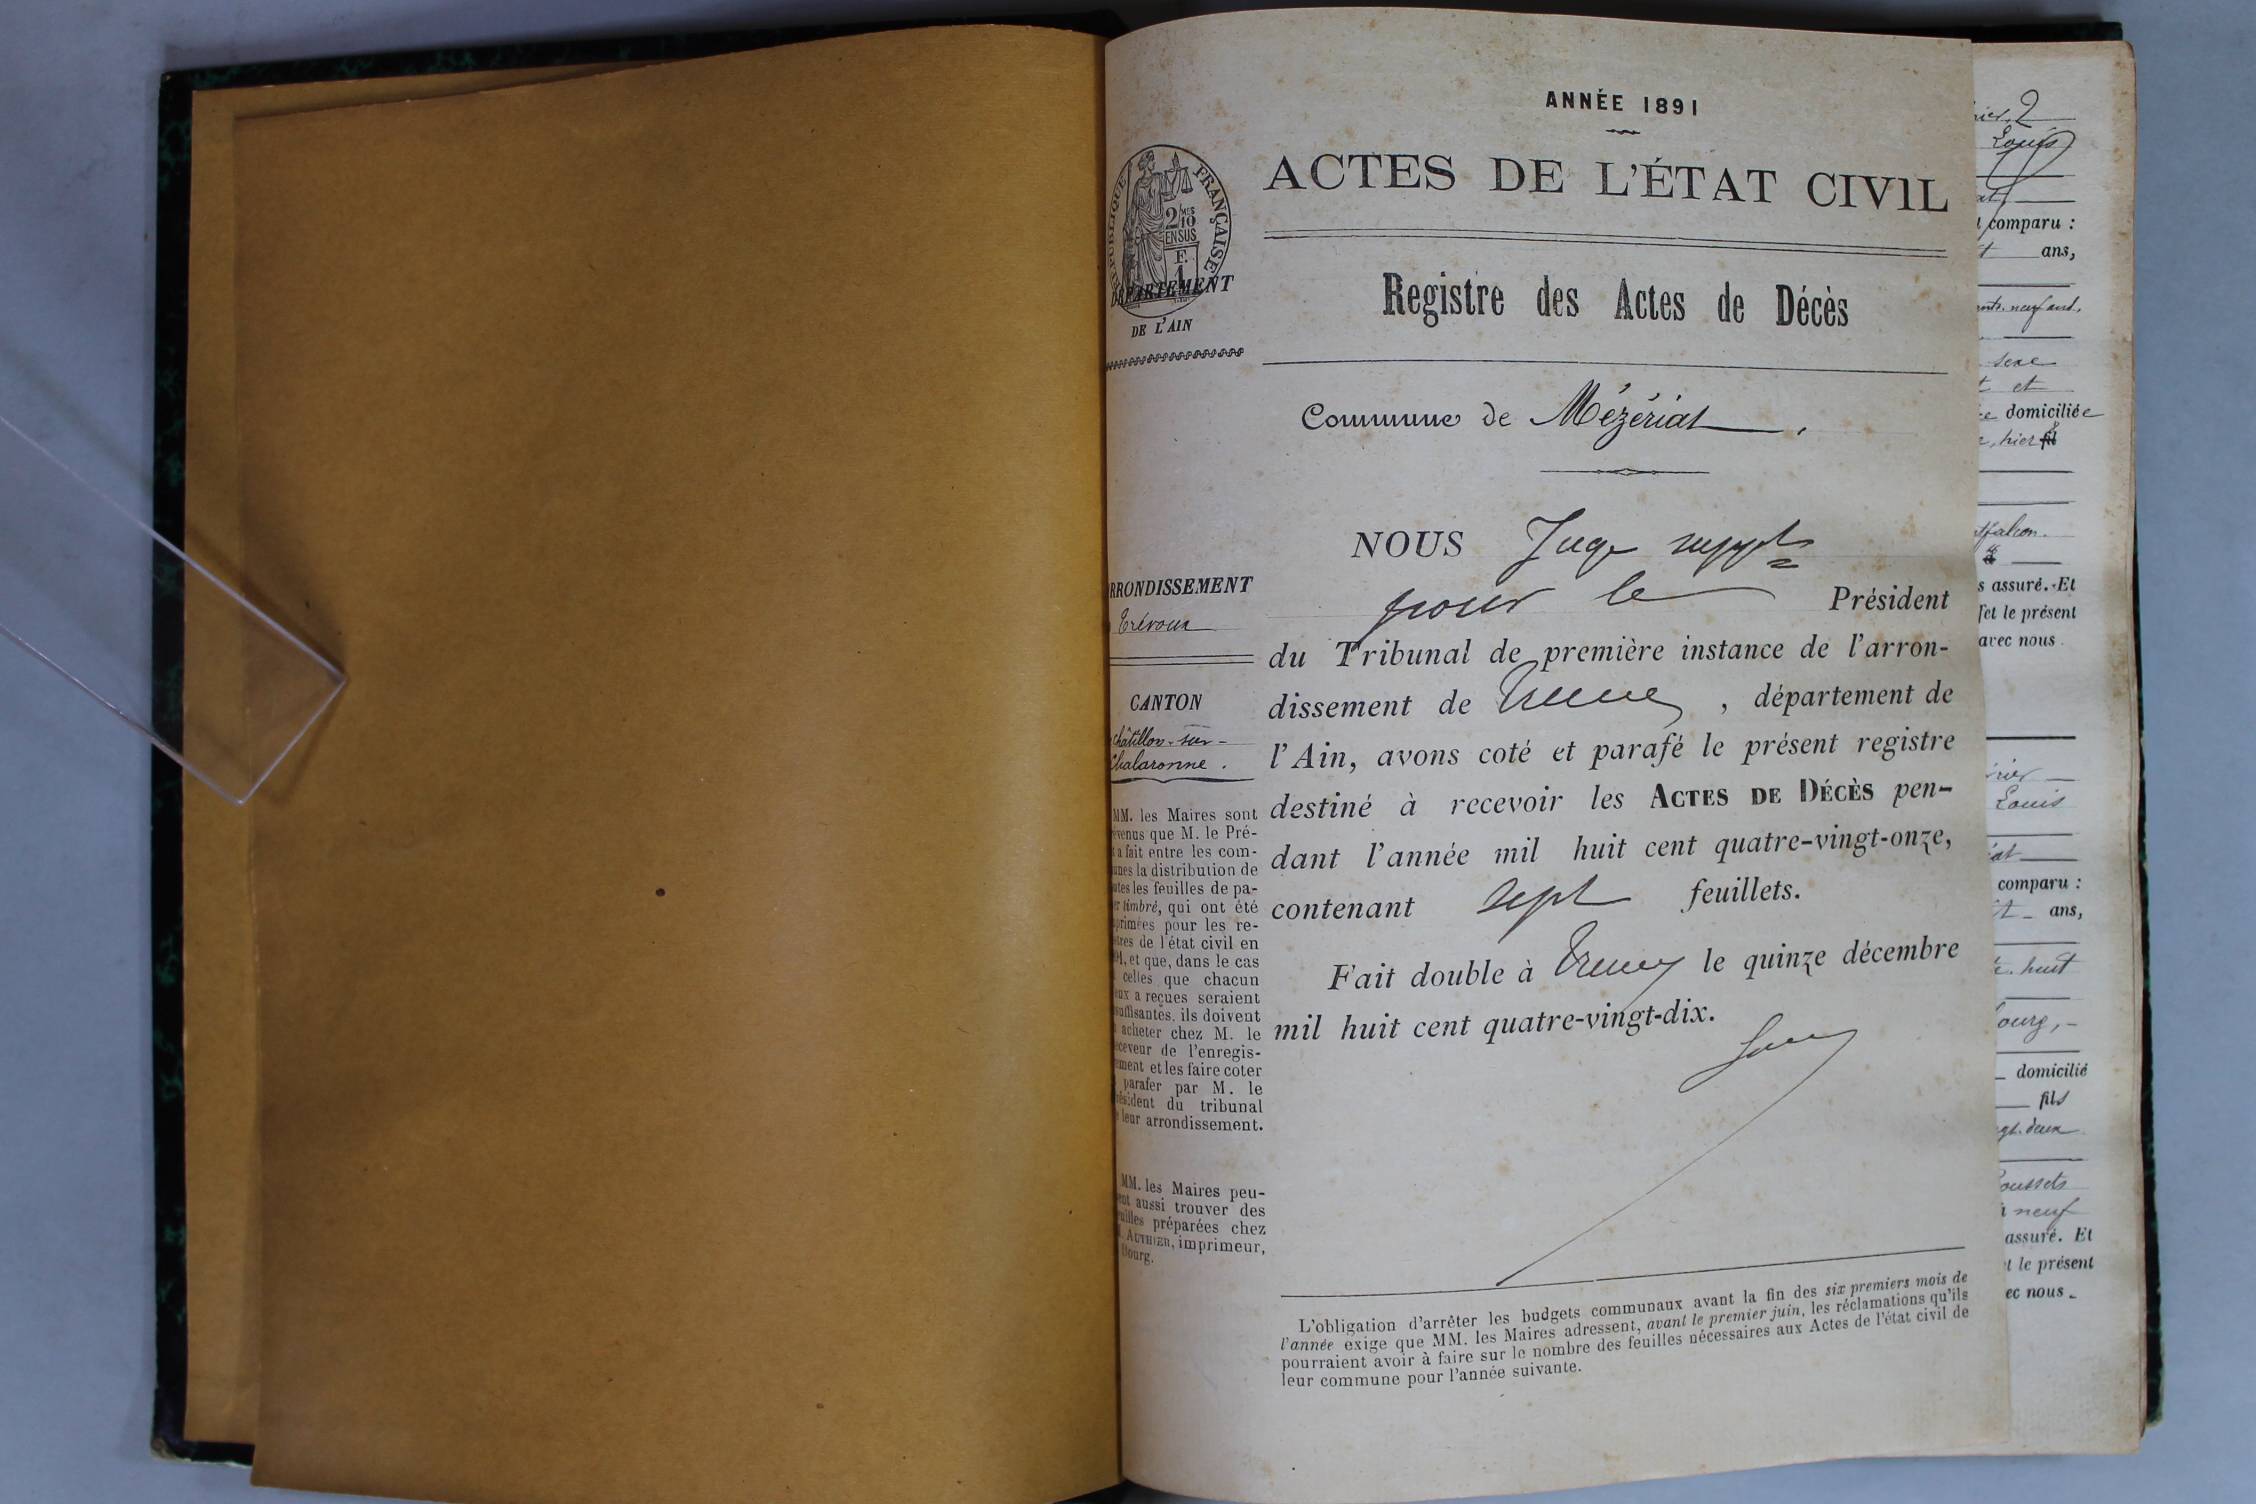 ANNÉE 1891
ACTES DE L'ÉTAT CIVIL
RÉPUBLIQUE FRANÇAISE
2 MES 10
EN SUS
F.
1
DÉPARTEMENT
DE L'AIN
Registre des Actes de Décès
Commune de Mézériat
NOUS Juge suppt
pour le Président
du Tribunal de première instance de l'arron-
dissement de , département de
l'Ain, avons coté et parafé le présent registre
destiné à recevoir les ACTES DE DÉCÈS pen-
dant l'année mil huit cent quatre-vingt-onze,
contenant sept feuillets.
Fait double à le quinze décembre
mil huit cent quatre-vingt-dix.
RRONDISSEMENT
Trévoux
CANTON
Châtillon-sur-
Chalaronne.
MM. les Maires sont
evenus que M. le Pré-
t a fait entre les com-
unes la distribution de
utes les feuilles de pa-
er timbré, qui ont été
primées pour les re-
stres de l'état civil en
91, et que, dans le cas
celles que chacun
eux a reçues seraient
suffisantes, ils doivent
acheter chez M. le
eceveur de l'enregis-
ement et les faire coter
parafer par M. le
résident du tribunal
e leur arrondissement.
MM. les Maires peu-
ent aussi trouver des
euilles préparées chez
M. AUTHIER, imprimeur,
Bourg.
L'obligation d'arrêter les budgets communaux avant la fin des six premiers mois de
l'année exige que MM. les Maires adressent, avant le premier juin, les réclamations qu'ils
pourraient avoir à faire sur le nombre des feuilles nécessaires aux Actes de l'état civil de
leur commune pour l'année suivante.
2
Louis
comparu :
ans,
sexe
et
domiciliée
hier
s assuré. Et
et le présent
avec nous
Louis
comparu :
ans,
huit
ourg,
domicilié
fils
gt-deux
neuf
assuré. Et
t le présent
ec nous